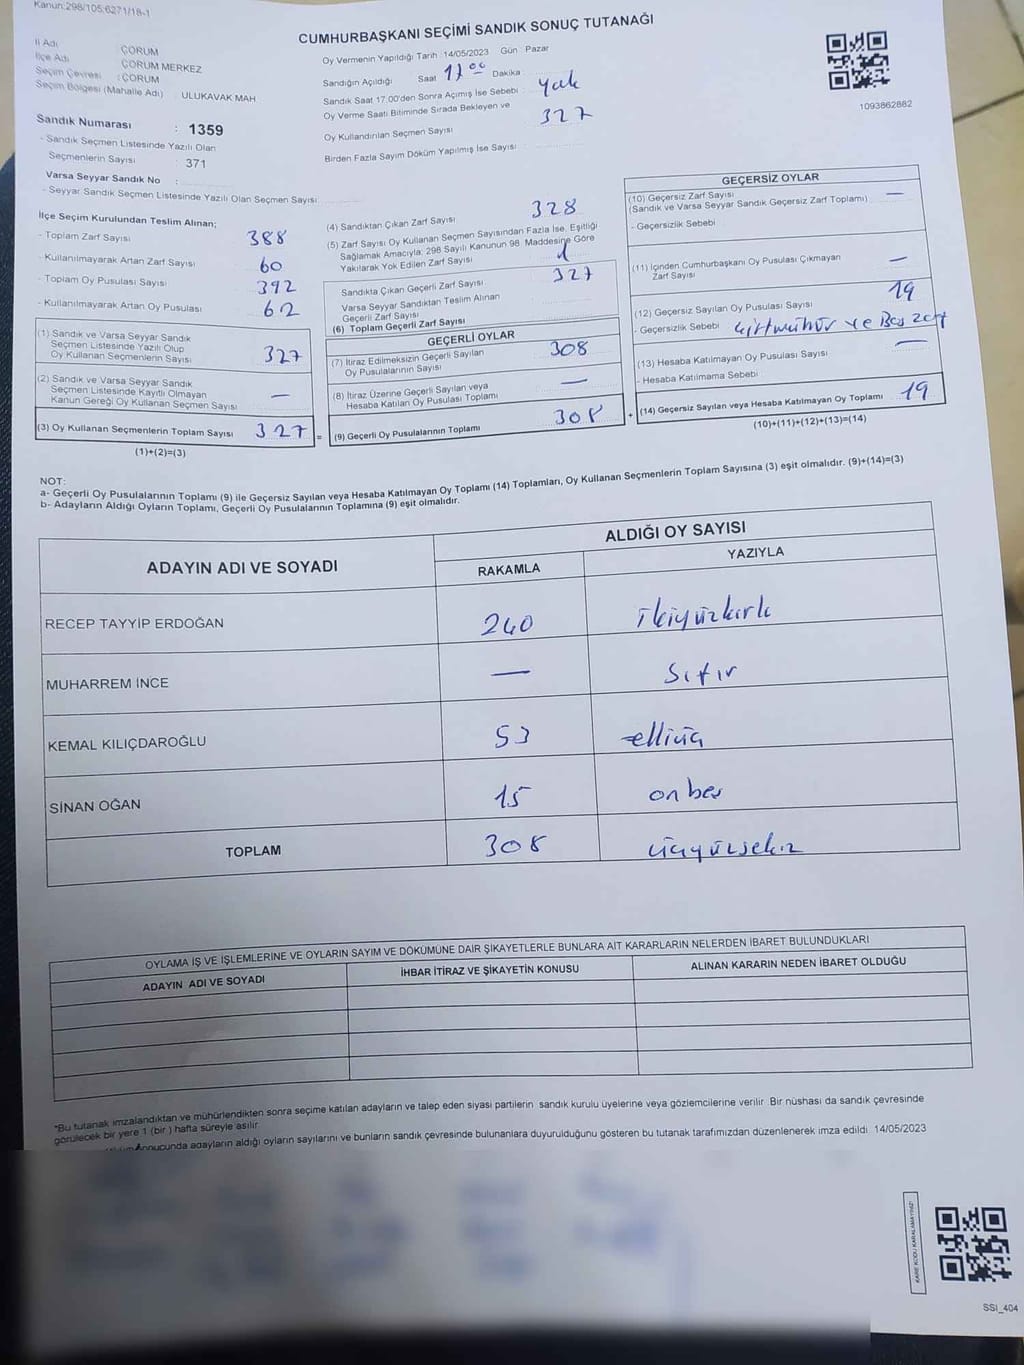 Kanun:298/105;6271/18-1
CUMHURBAŞKANI SEÇİMİ SANDIK SONUÇ TUTANAĞI
İl Adı : ÇORUM
İlçe Adı : ÇORUM MERKEZ
Seçim Çevresi : ÇORUM
Seçim Bölgesi (Mahalle Adı) : ULUKAVAK MAH
Sandık Numarası : 1359
- Sandık Seçmen Listesinde Yazılı Olan
Seçmenlerin Sayısı : 371
Varsa Seyyar Sandık No :
- Seyyar Sandık Seçmen Listesinde Yazılı Olan Seçmen Sayısı:
Oy Vermenin Yapıldığı Tarih : 14/05/2023 Gün : Pazar
Sandığın Açıldığı Saat 17 00 Dakika :
Sandık Saat 17:00'den Sonra Açımış İse Sebebi : yok
Oy Verme Saati Bitiminde Sırada Bekleyen ve
Oy Kullandırılan Seçmen Sayısı 327
Birden Fazla Sayım Döküm Yapılmış İse Sayısı :
1093862882
İlçe Seçim Kurulundan Teslim Alınan;
- Toplam Zarf Sayısı 388
- Kullanılmayarak Artan Zarf Sayısı 60
- Toplam Oy Pusulası Sayısı 392
- Kullanılmayarak Artan Oy Pusulası 62
(1) Sandık ve Varsa Seyyar Sandık
Seçmen Listesinde Yazılı Olup
Oy Kullanan Seçmenlerin Sayısı 327
(2) Sandık ve Varsa Seyyar Sandık
Seçmen Listesinde Kayıtlı Olmayan
Kanun Gereği Oy Kullanan Seçmen Sayısı —
(3) Oy Kullanan Seçmenlerin Toplam Sayısı 327 =
(1)+(2)=(3)
(4) Sandıktan Çıkan Zarf Sayısı 328
(5) Zarf Sayısı Oy Kullanan Seçmen Sayısından Fazla İse, Eşitliği
Sağlamak Amacıyla; 298 Sayılı Kanunun 98. Maddesine Göre
Yakılarak Yok Edilen Zarf Sayısı 1
Sandıkta Çıkan Geçerli Zarf Sayısı 327
Varsa Seyyar Sandıktan Teslim Alınan
Geçerli Zarf Sayısı
(6) Toplam Geçerli Zarf Sayısı
GEÇERLİ OYLAR
(7) İtiraz Edilmeksizin Geçerli Sayılan
Oy Pusulalarının Sayısı 308
(8) İtiraz Üzerine Geçerli Sayılan veya
Hesaba Katılan Oy Pusulası Toplamı —
(9) Geçerli Oy Pusulalarının Toplamı 308 +
GEÇERSİZ OYLAR
(10) Geçersiz Zarf Sayısı —
(Sandık ve Varsa Seyyar Sandık Geçersiz Zarf Toplamı)
- Geçersizlik Sebebi
(11) İçinden Cumhurbaşkanı Oy Pusulası Çıkmayan
Zarf Sayısı —
(12) Geçersiz Sayılan Oy Pusulası Sayısı 19
- Geçersizlik Sebebi çiftmühür ve Boş zarf
(13) Hesaba Katılmayan Oy Pusulası Sayısı —
- Hesaba Katılmama Sebebi
(14) Geçersiz Sayılan veya Hesaba Katılmayan Oy Toplamı 19
(10)+(11)+(12)+(13)=(14)
NOT:
a- Geçerli Oy Pusulalarının Toplamı (9) ile Geçersiz Sayılan veya Hesaba Katılmayan Oy Toplamı (14) Toplamları, Oy Kullanan Seçmenlerin Toplam Sayısına (3) eşit olmalıdır. (9)+(14)=(3)
b- Adayların Aldığı Oyların Toplamı, Geçerli Oy Pusulalarının Toplamına (9) eşit olmalıdır.
ADAYIN ADI VE SOYADI ALDIĞI OY SAYISI
RAKAMLA YAZIYLA
RECEP TAYYİP ERDOĞAN 240 ikiyüzkırk
MUHARREM İNCE — Sıfır
KEMAL KILIÇDAROĞLU 53 elliüç
SİNAN OĞAN 15 onbeş
TOPLAM 308 üçyüzsekiz
OYLAMA İŞ VE İŞLEMLERİNE VE OYLARIN SAYIM VE DÖKÜMÜNE DAİR ŞİKAYETLERLE BUNLARA AİT KARARLARIN NELERDEN İBARET BULUNDUKLARI
ADAYIN ADI VE SOYADI İHBAR İTİRAZ VE ŞİKAYETİN KONUSU ALINAN KARARIN NEDEN İBARET OLDUĞU
*Bu tutanak imzalandıktan ve mühürlendikten sonra seçime katılan adayların ve talep eden siyasi partilerin sandık kurulu üyelerine veya gözlemcilerine verilir. Bir nüshası da sandık çevresinde
görülecek bir yere 1 (bir) hafta süreyle asılır.
adayların aldığı oyların sayılarını ve bunların sandık çevresinde bulunanlara duyurulduğunu gösteren bu tutanak tarafımızdan düzenlenerek imza edildi. 14/05/2023
KARE KODU KARALAMAYINIZ!
SSI_404